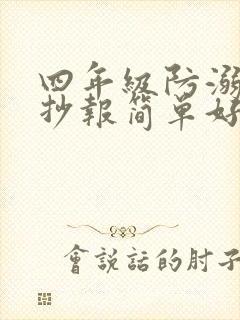 四年级防溺
抄報简單好
會説話的肘子